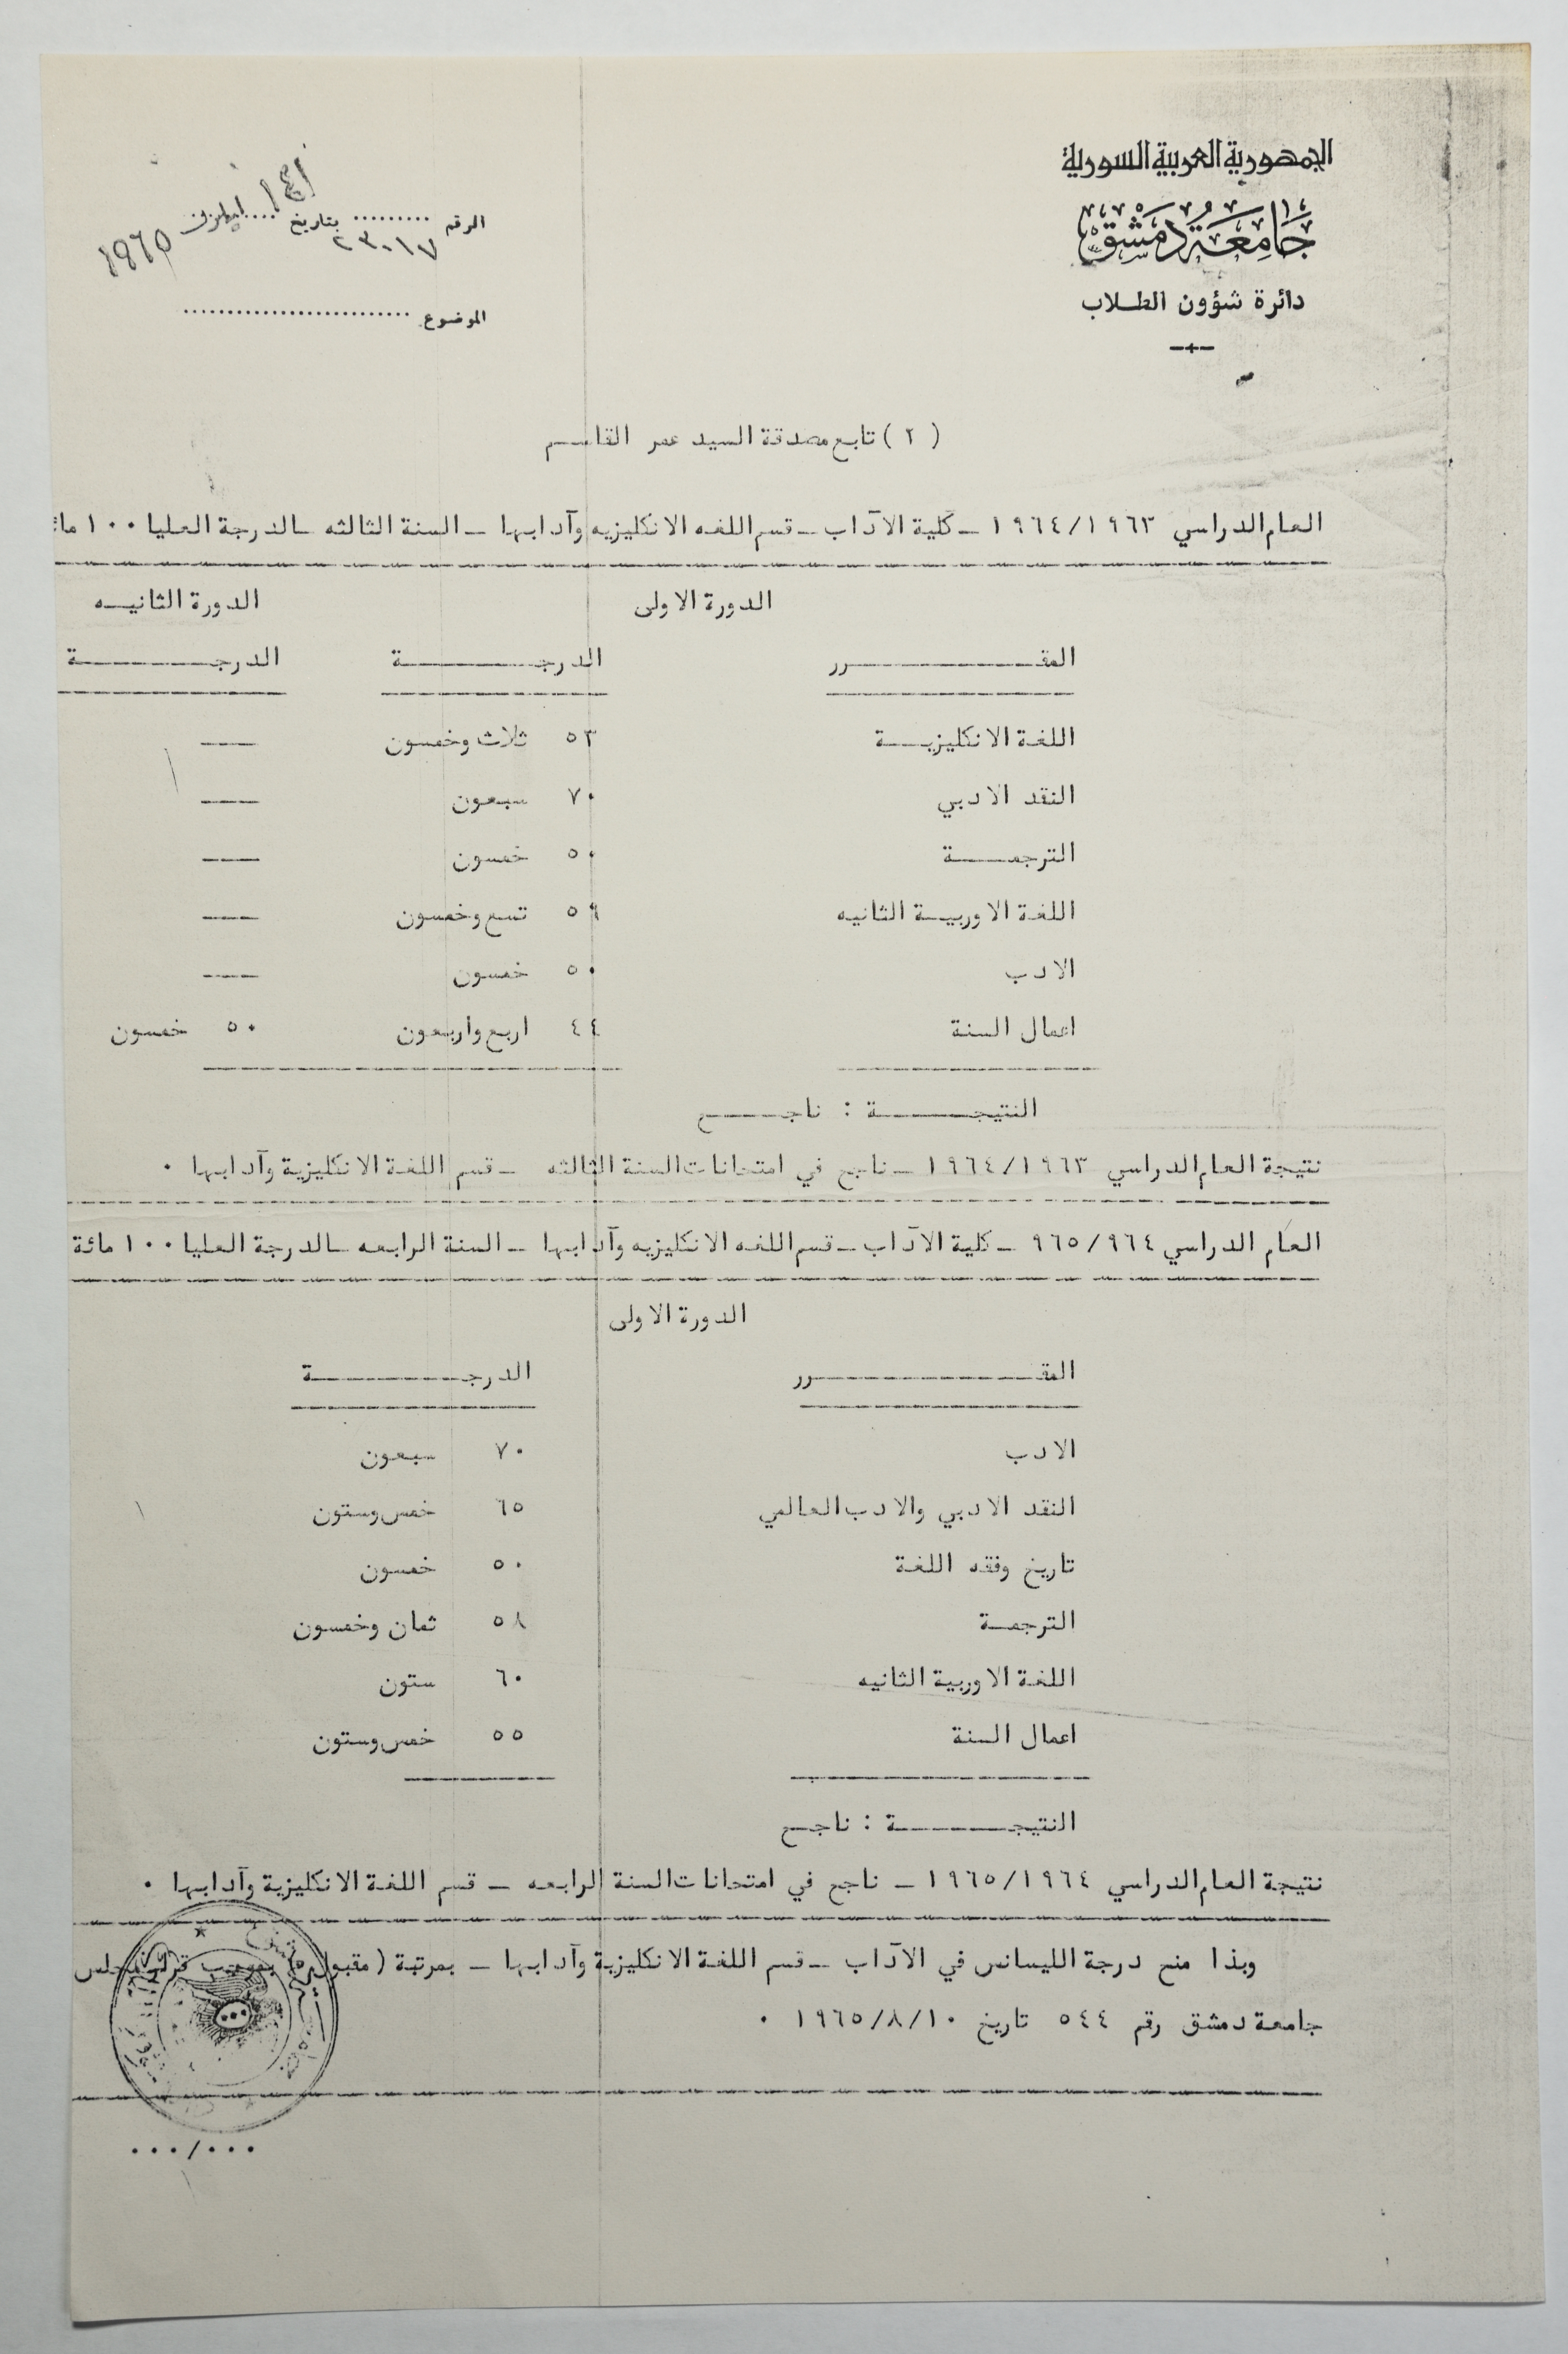 الجمهورية العربية السورية
جامعة دمشق
دائرة شؤون الطلاب
الرقم ......... بتاريخ ....
٢٣٠١٧
١٩٦٥
الموضوع ..........................
( ٢ ) تابع مصدقة السيد عمر القاسم
العام الدراسي ١٩٦٤/١٩٦٣ – كلية الآداب – قسم اللغه الانكليزيه وآدابها – السنة الثالثه – الدرجة العليا ١٠٠
الدورة الاولى الدورة الثانيه
المقرر الدرجة الدرجة
اللغة الانكليزية ٥٣ ثلاث وخمسون ——
النقد الادبي ٧٠ سبعون ——
الترجمة ٥٠ خمسون ——
اللغة الاوربية الثانيه ٥٩ تسع وخمسون ——
الادب ٥٠ خمسون ——
اعمال السنة ٤٤ اربع واربعون ٥٠ خمسون
النتيجة : ناجح
نتيجة العام الدراسي ١٩٦٤/١٩٦٣ – ناجح في امتحانات السنة الثالثه – قسم اللغة الانكليزية وآدابها ٠
العام الدراسي ٩٦٥/٩٦٤ – كلية الآداب – قسم اللغه الانكليزيه وآدابها – السنة الرابعه – الدرجة العليا ١٠٠ مائة
الدورة الاولى
المقرر الدرجة
الادب ٧٠ سبعون
النقد الادبي والادب العالمي ٦٥ خمس وستون
تاريخ وفقه اللغة ٥٠ خمسون
الترجمة ٥٨ ثمان وخمسون
اللغة الاوربية الثانيه ٦٠ ستون
اعمال السنة ٥٥ خمس وستون
النتيجة : ناجح
نتيجة العام الدراسي ١٩٦٥/١٩٦٤ – ناجح في امتحانات السنة الرابعه – قسم اللغة الانكليزية وآدابها ٠
وبذا منح درجة الليسانس في الآداب – قسم اللغة الانكليزية وآدابها – بمرتبة (مقبول) بموجب قرار مجلس
جامعة دمشق رقم ٥٤٤ تاريخ ١٩٦٥/٨/١٠ ٠
٠٠٠/٠٠٠